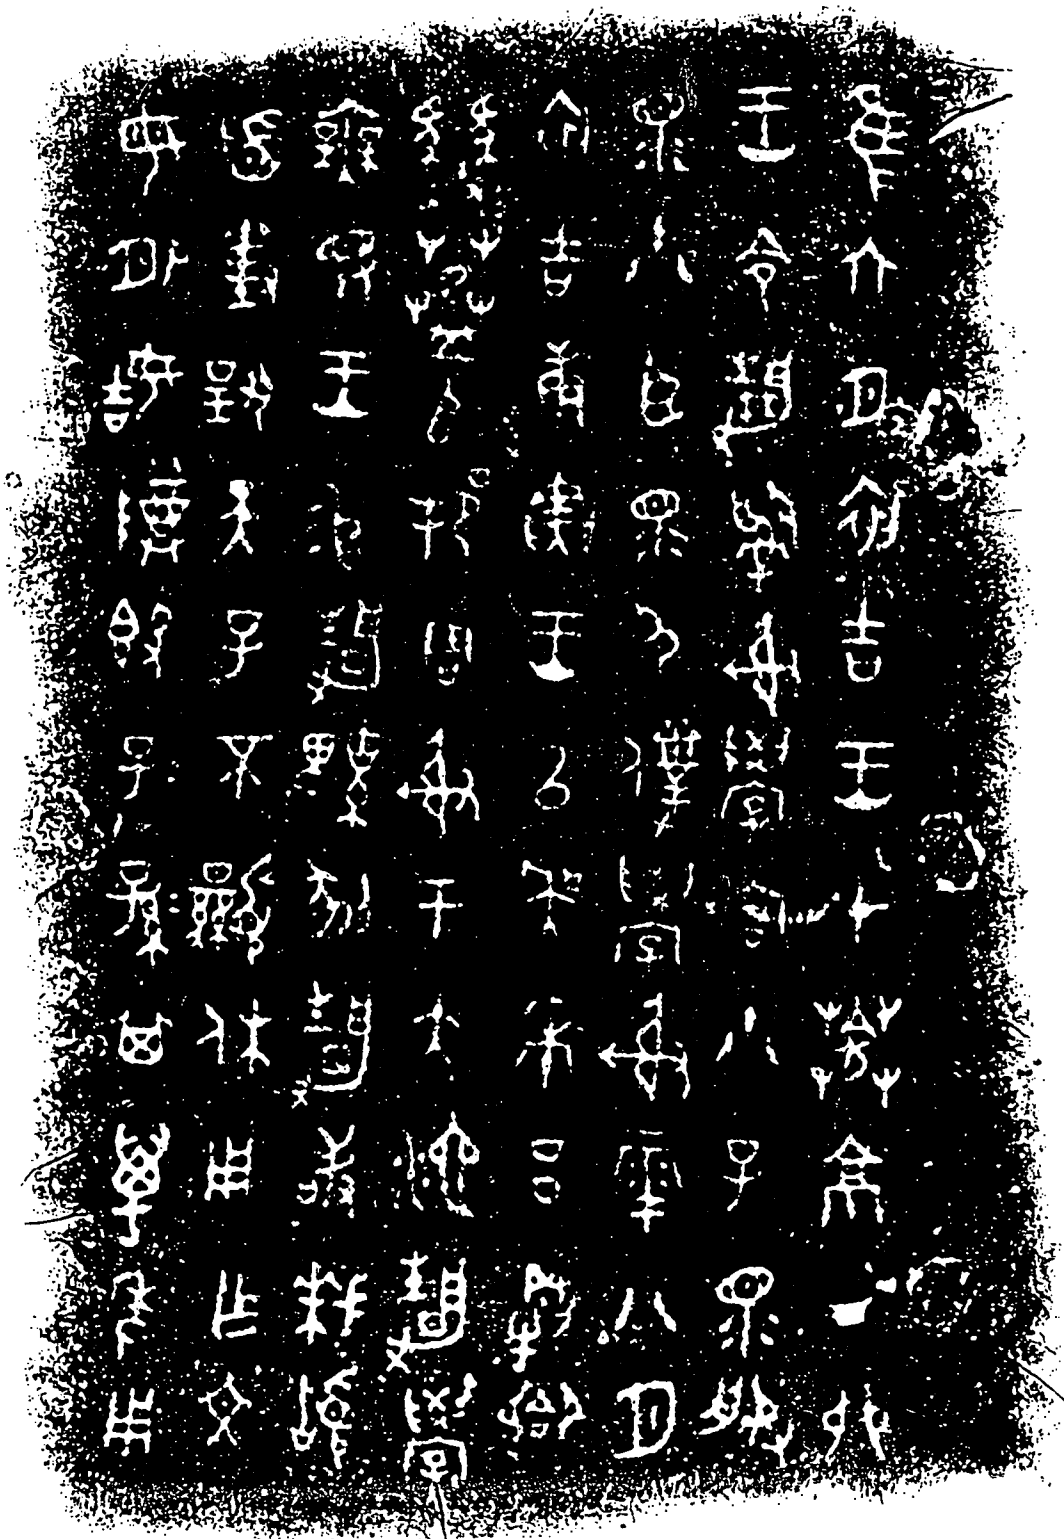 隹六月初吉王才葊京丁卯
王令靜𤔲射學宮小子眔服
眔小臣眔尸僕學射雩八月
初吉庚寅王以吳𠦪呂犅卿
豳𠂤邦君射于大池靜學
無斁王易靜鞞剢靜敢拜𩒨
首對揚天子不顯休用乍文
母外姞尊簋子=孫=其萬年用